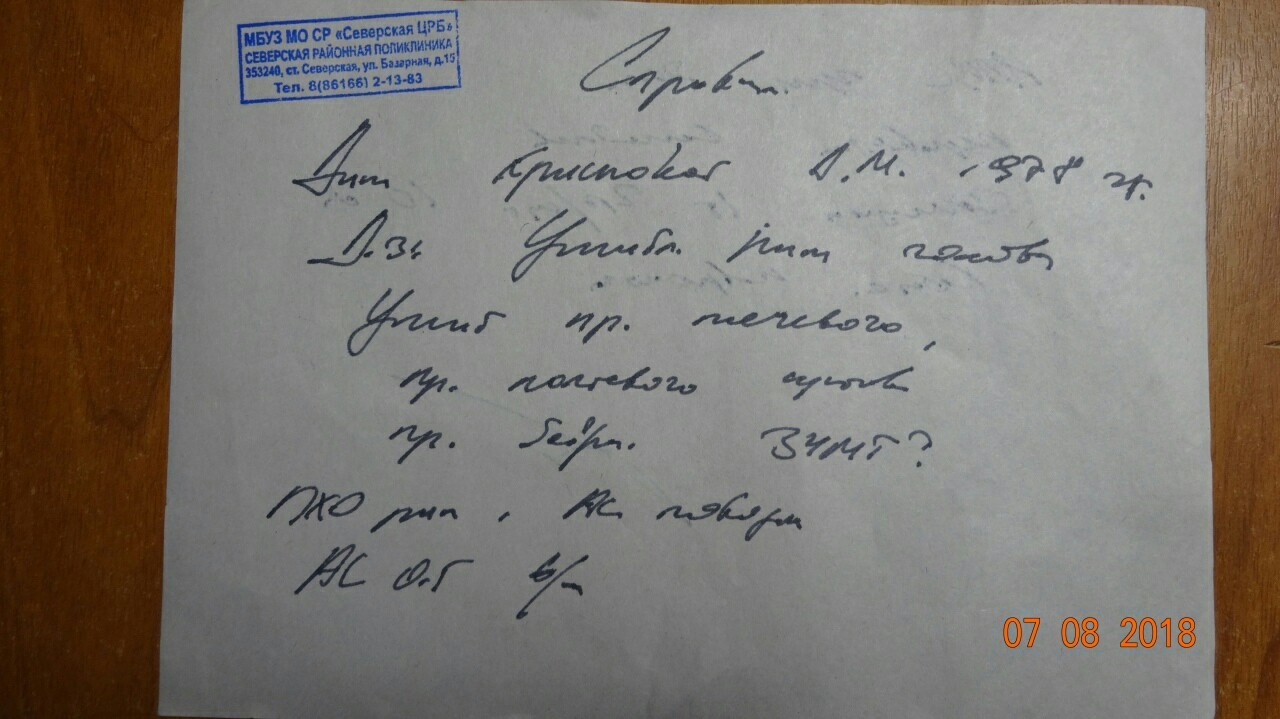 МБУЗ МО СР «Северская ЦРБ»
СЕВЕРСКАЯ РАЙОННАЯ ПОЛИКЛИНИКА
353240, ст. Северская, ул. Базарная, д.15
Тел. 8(86166) 2-13-83
Справка.
Дана А.М. 1978 гр.
Д.зs Ушибл. рана головы
Ушиб пр. плечевого,
пр. локтевого сустава
пр. бедра. ЗЧМТ?
ПХО раны, Ас повязка
АС 0.5 в/м
07 08 2018